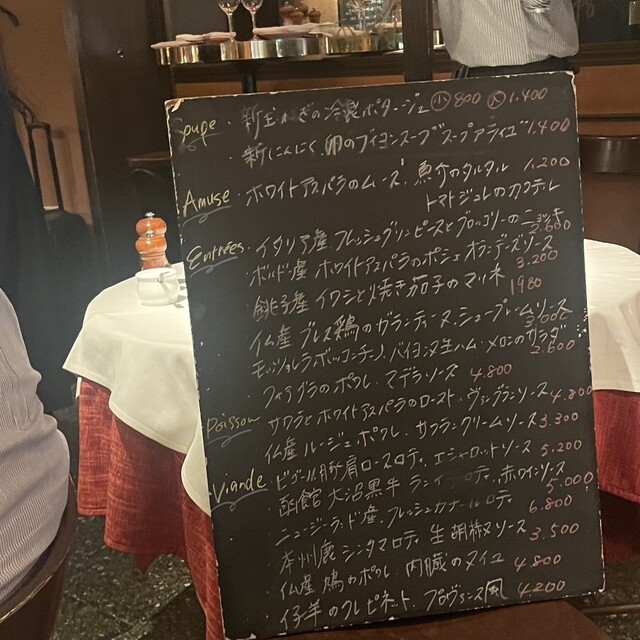 Soupe
・新玉ねぎの冷製ポタージュ ㊙小 800 大 1.400
・新にんにく、卵のブイヨンスープ "スープアライユ" 1.400
Amuse
・ホワイトアスパラのムース、魚介のタルタル
トマトジュレのカクテル 1.200
Entrées
・イタリア産 フレッシュグリーンピースとブロッコリーの 2.600
・ボルドー産 ホワイトアスパラのポシェ オランデーズソース 3.200
・銚子産 イワシと焼き茄子のマリネ 1980
・仏産 ブレス鶏のガランティーヌ、シュープレームソース
・モッツァレラボッコンチーノ、バイヨンヌ生ハム・メロンのサラダ 2.600
・フォアグラのポワレ、マデラソース 4.800
Poisson
・サワラとホワイトアスパラのロースト、ヴァンブランソース 4.800
・仏産 ルージェ ポワレ、サフランクリームソース 3.300
Viande
・ビゴール豚肩ロースロティ、エシャロットソース 5.200
・函館 大沼黒牛 ランイチロティ、赤ワインソース 5.000
・ニュージーランド産、フレッシュカナールロティ 6.800
・本州鹿シンタマロティ 生胡椒ソース 3.500
・仏産 鶉のポワレ、内臓のアイユ 4800
・仔羊のクレピネット、プロヴァンス風 4200